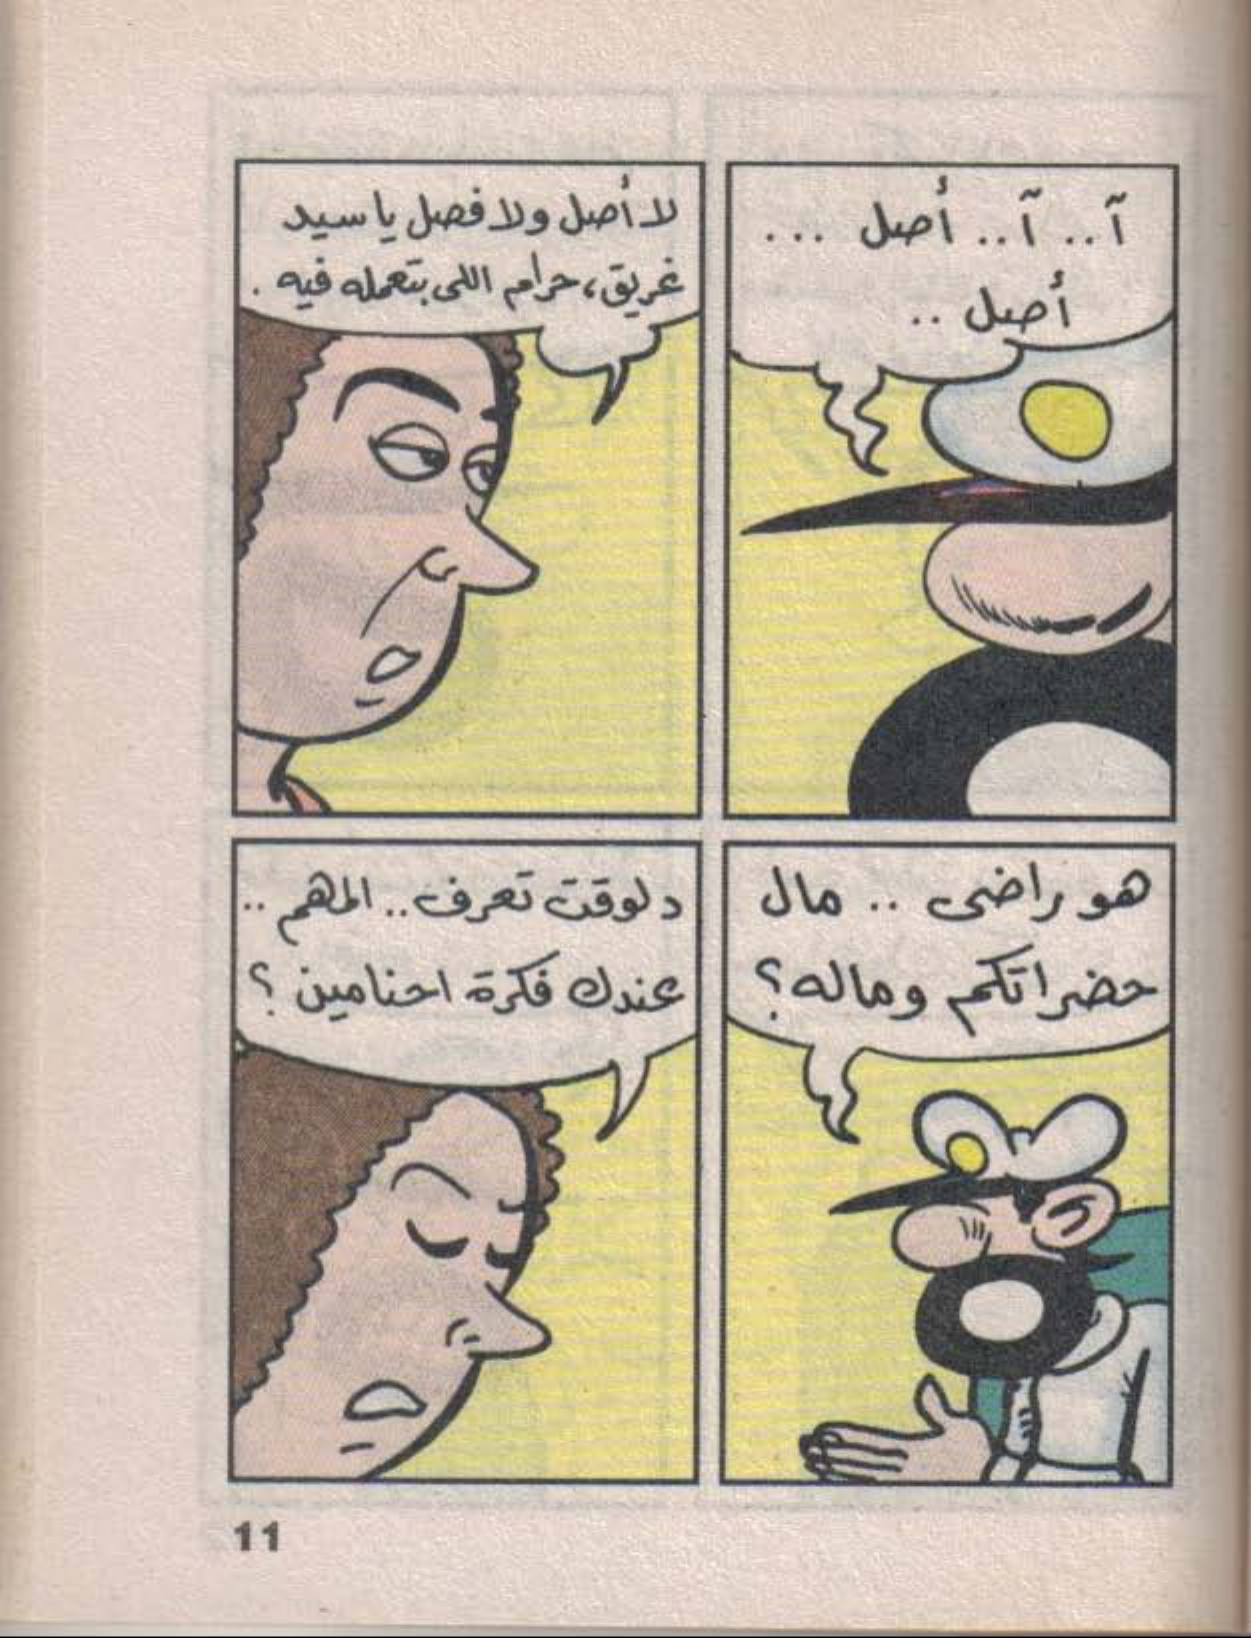 آ.. آ.. أصل ...
أصل ..
لا أصل ولا فصل يا سيد
غريق، حرام اللى بتعمله فيه .
هو راضى .. مال
حضراتكم وماله؟
دلوقت تعرف.. المهم ..
عندك فكرة احنا مين ؟
11